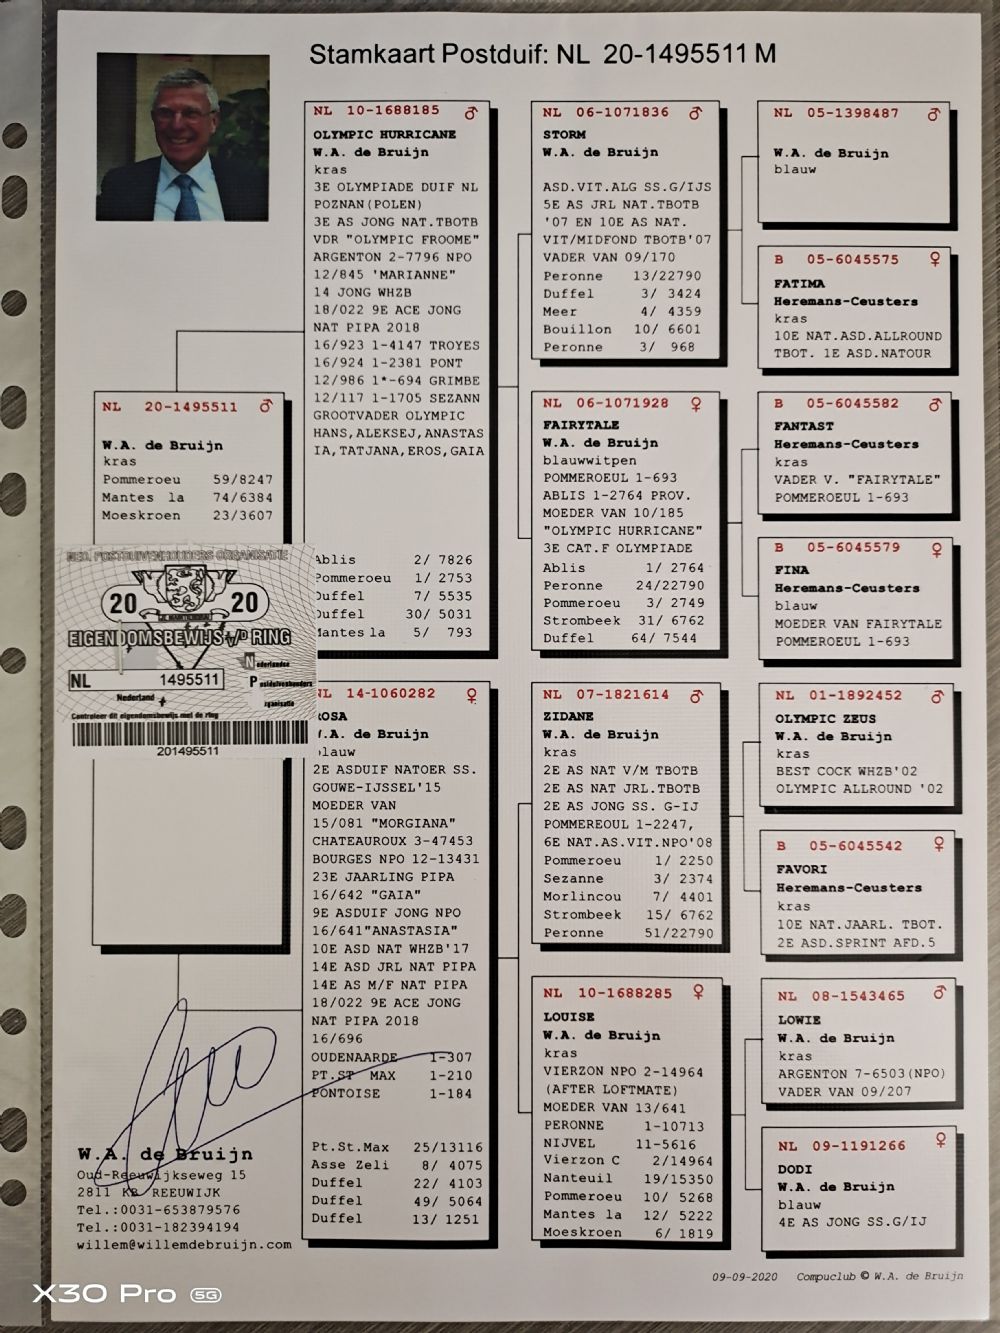 Stamkaart Postduif: NL 20-1495511 M
NL 20-1495511 ♂
W.A. de Bruijn
kras
Pommeroeu 59/8247
Mantes la 74/6384
Moeskroen 23/3607
NED. POSTDUIVENHOUDERS ORGANISATIE
20 20
EIGENDOMSBEWIJS V/D RING
NL 1495511
Nederland
Nederlandse
Postduivenhouders
rganisatie
Controleer dit eigendomsbewijs met de ring
201495511
W.A. de Bruijn
Oud-Reeuwijkseweg 15
2811 KB REEUWIJK
Tel.:0031-653879576
Tel.:0031-182394194
willem@willemdebruijn.com
NL 10-1688185 ♂
OLYMPIC HURRICANE
W.A. de Bruijn
kras
3E OLYMPIADE DUIF NL
POZNAN(POLEN)
3E AS JONG NAT.TBOTB
VDR "OLYMPIC FROOME"
ARGENTON 2-7796 NPO
12/845 'MARIANNE"
14 JONG WHZB
18/022 9E ACE JONG
NAT PIPA 2018
16/923 1-4147 TROYES
16/924 1-2381 PONT
12/986 1*-694 GRIMBE
12/117 1-1705 SEZANN
GROOTVADER OLYMPIC
HANS,ALEKSEJ,ANASTAS
IA,TATJANA,EROS,GAIA
Ablis 2/ 7826
Pommeroeu 1/ 2753
Duffel 7/ 5535
Duffel 30/ 5031
Mantes la 5/ 793
NL 14-1060282 ♀
ROSA
W.A. de Bruijn
blauw
2E ASDUIF NATOER SS.
GOUWE-IJSSEL'15
MOEDER VAN
15/081 "MORGIANA"
CHATEAUROUX 3-47453
BOURGES NPO 12-13431
23E JAARLING PIPA
16/642 "GAIA"
9E ASDUIF JONG NPO
16/641"ANASTASIA"
10E ASD NAT WHZB'17
14E ASD JRL NAT PIPA
14E AS M/F NAT PIPA
18/022 9E ACE JONG
NAT PIPA 2018
16/696
OUDENAARDE 1-307
PT.ST MAX 1-210
PONTOISE 1-184
Pt.St.Max 25/13116
Asse Zeli 8/ 4075
Duffel 22/ 4103
Duffel 49/ 5064
Duffel 13/ 1251
NL 06-1071836 ♂
STORM
W.A. de Bruijn
ASD.VIT.ALG SS.G/IJS
5E AS JRL NAT.TBOTB
'07 EN 10E AS NAT.
VIT/MIDFOND TBOTB'07
VADER VAN 09/170
Peronne 13/22790
Duffel 3/ 3424
Meer 4/ 4359
Bouillon 10/ 6601
Peronne 3/ 968
NL 06-1071928 ♀
FAIRYTALE
W.A. de Bruijn
blauwwitpen
POMMEROEUL 1-693
ABLIS 1-2764 PROV.
MOEDER VAN 10/185
"OLYMPIC HURRICANE"
3E CAT.F OLYMPIADE
Ablis 1/ 2764
Peronne 24/22790
Pommeroeu 3/ 2749
Strombeek 31/ 6762
Duffel 64/ 7544
NL 07-1821614 ♂
ZIDANE
W.A. de Bruijn
kras
2E AS NAT V/M TBOTB
2E AS NAT JRL.TBOTB
2E AS JONG SS. G-IJ
POMMEREOUL 1-2247,
6E NAT.AS.VIT.NPO'08
Pommeroeu 1/ 2250
Sezanne 3/ 2374
Morlincou 7/ 4401
Strombeek 15/ 6762
Peronne 51/22790
NL 10-1688285 ♀
LOUISE
W.A. de Bruijn
kras
VIERZON NPO 2-14964
(AFTER LOFTMATE)
MOEDER VAN 13/641
PERONNE 1-10713
NIJVEL 11-5616
Vierzon C 2/14964
Nanteuil 19/15350
Pommeroeu 10/ 5268
Mantes la 12/ 5222
Moeskroen 6/ 1819
NL 05-1398487 ♂
W.A. de Bruijn
blauw
B 05-6045575 ♀
FATIMA
Heremans-Ceusters
kras
10E NAT.ASD.ALLROUND
TBOT. 1E ASD.NATOUR
B 05-6045582 ♂
FANTAST
Heremans-Ceusters
kras
VADER V. "FAIRYTALE"
POMMEROEUL 1-693
B 05-6045579 ♀
FINA
Heremans-Ceusters
blauw
MOEDER VAN FAIRYTALE
POMMEROEUL 1-693
NL 01-1892452 ♂
OLYMPIC ZEUS
W.A. de Bruijn
kras
BEST COCK WHZB'02
OLYMPIC ALLROUND '02
B 05-6045542 ♀
FAVORI
Heremans-Ceusters
kras
10E NAT.JAARL. TBOT.
2E ASD.SPRINT AFD.5
NL 08-1543465 ♂
LOWIE
W.A. de Bruijn
kras
ARGENTON 7-6503(NPO)
VADER VAN 09/207
NL 09-1191266 ♀
DODI
W.A. de Bruijn
blauw
4E AS JONG SS.G/IJ
09-09-2020 Compuclub © W.A. de Bruijn
X30 Pro 5G